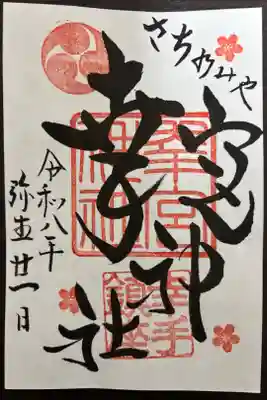 さちのみや
幸宮神社
幸宮神社
幸手鎮座
令和八年
弥生廿一日